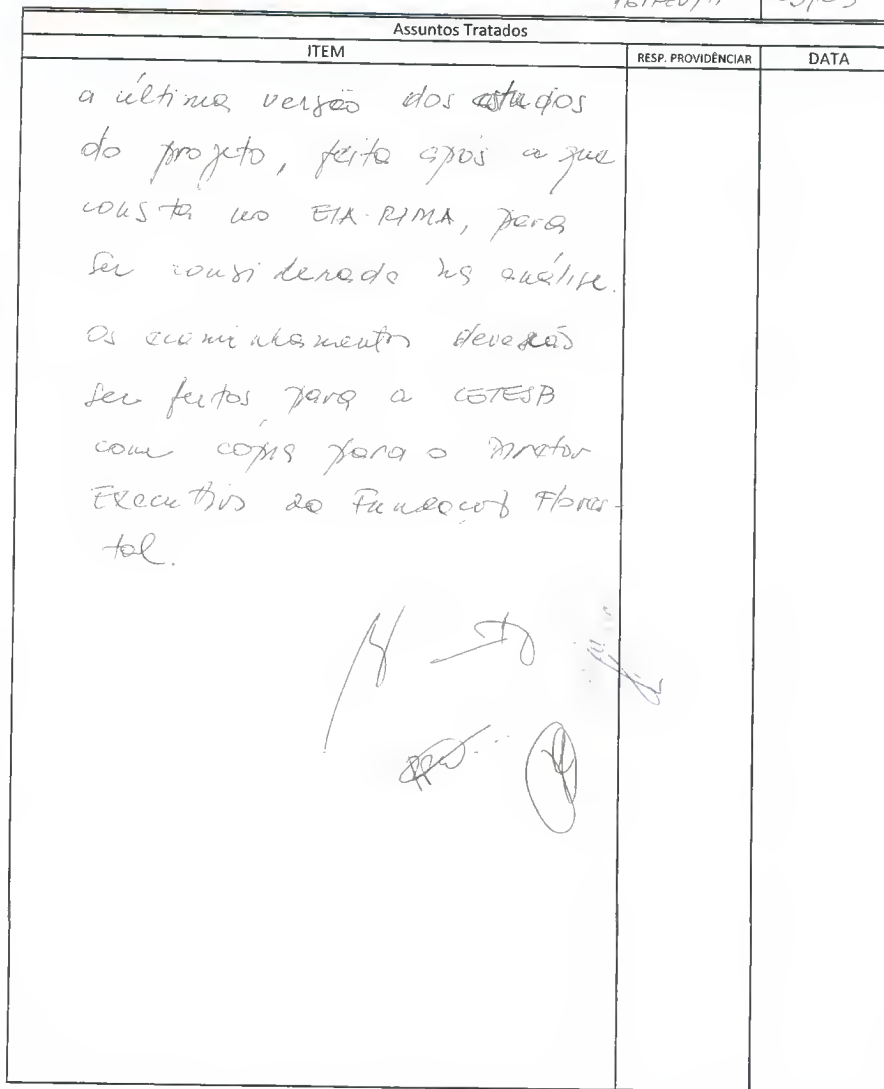 Assuntos Tratados
ITEM RESP. PROVIDÊNCIAR DATA
a última versão dos estudos
do projeto, feita após a que
consta no EIA-RIMA, para
ser considerada na análise.
Os encaminhamentos deverão
ser feitos para a CETESB
com cópia para o Diretor
Executivo da Fundação Flores-
tal.